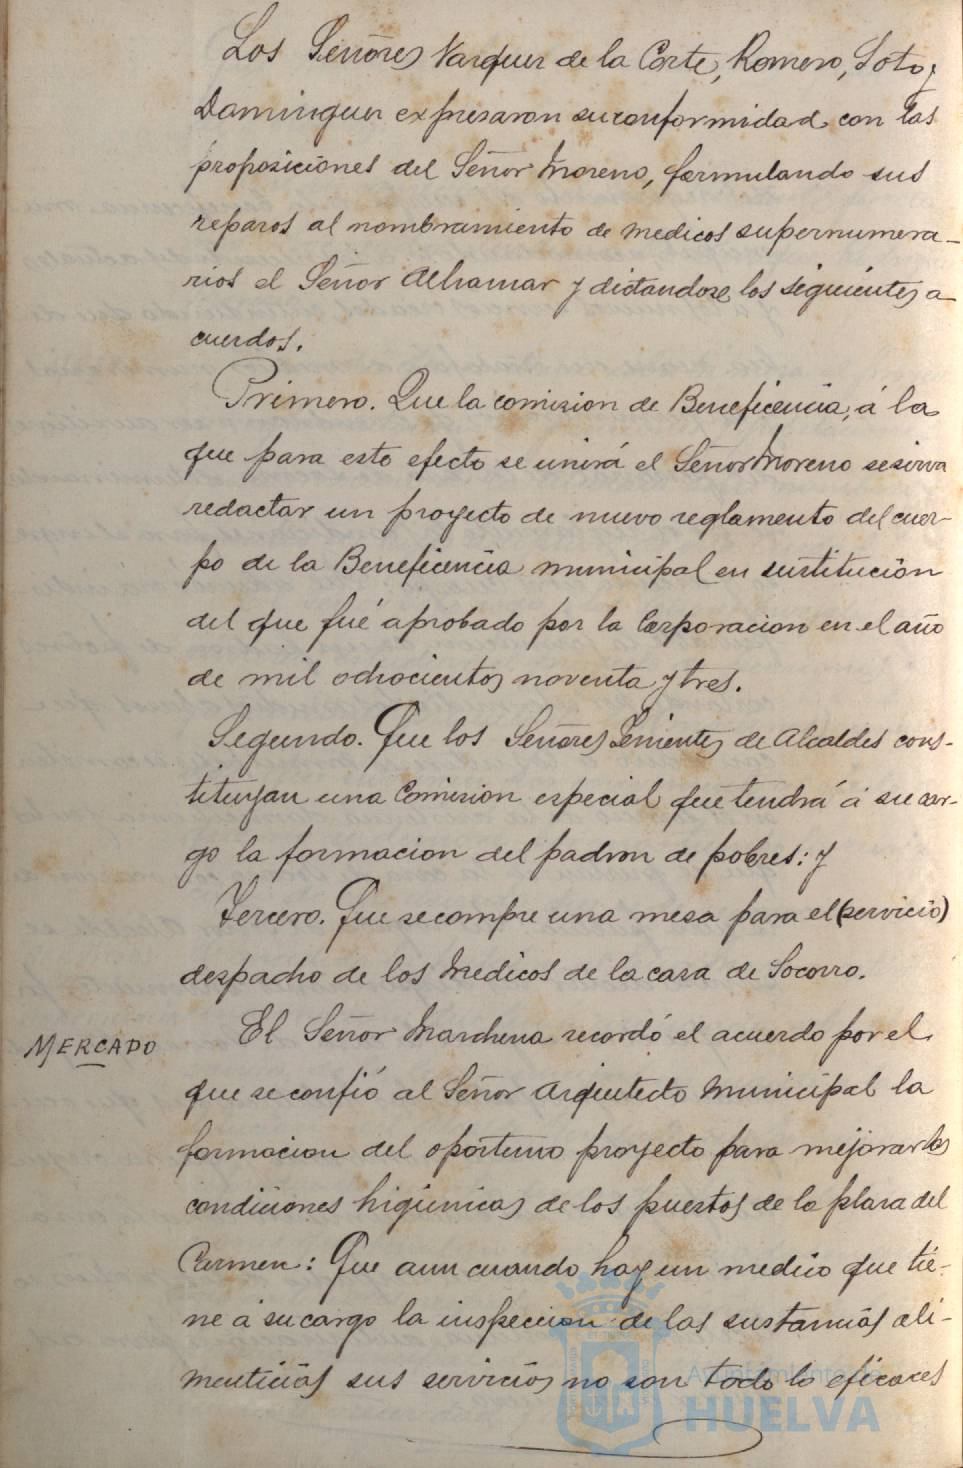 Los Señores Vazquez de la Corte, Romero, Soto y
Dominguez expresaron su conformidad con las
proposiciones del Señor Moreno, formulando sus
reparos al nombramiento de medicos supernumera-
rios el Señor Alhamar y dictandose los siguientes a-
cuerdos.
Primero. Que la comision de Beneficencia, á la
que para este efecto se unirá el Señor Moreno se sirva
redactar un proyecto de nuevo reglamento del cuer-
po de la Beneficencia municipal en sustitucion
del que fué aprobado por la Corporacion en el año
de mil ochocientos noventa y tres.
Segundo. Que los Señores Tenientes de Alcaldes cons-
tituyan una Comision especial que tendrá á su car-
go la formacion del padron de pobres: y
Tercero. Que se compre una mesa para el (servicio)
despacho de los Medicos de la casa de Socorro.
MERCADO
El Señor Marchena recordó el acuerdo por el
que se confió al Señor Arquitecto Municipal la
formacion del oportuno proyecto para mejorar las
condiciones higienicas de los puestos de la plaza del
Carmen: Que aun cuando hay un medico que tie-
ne á su cargo la inspeccion de las sustancias ali-
menticias sus servicios no son todo lo eficaces
Ayuntamiento de
HUELVA